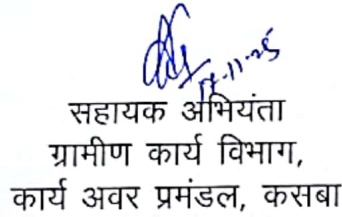 17-11-25
सहायक अभियंता
ग्रामीण कार्य विभाग,
कार्य अवर प्रमंडल, कसबा